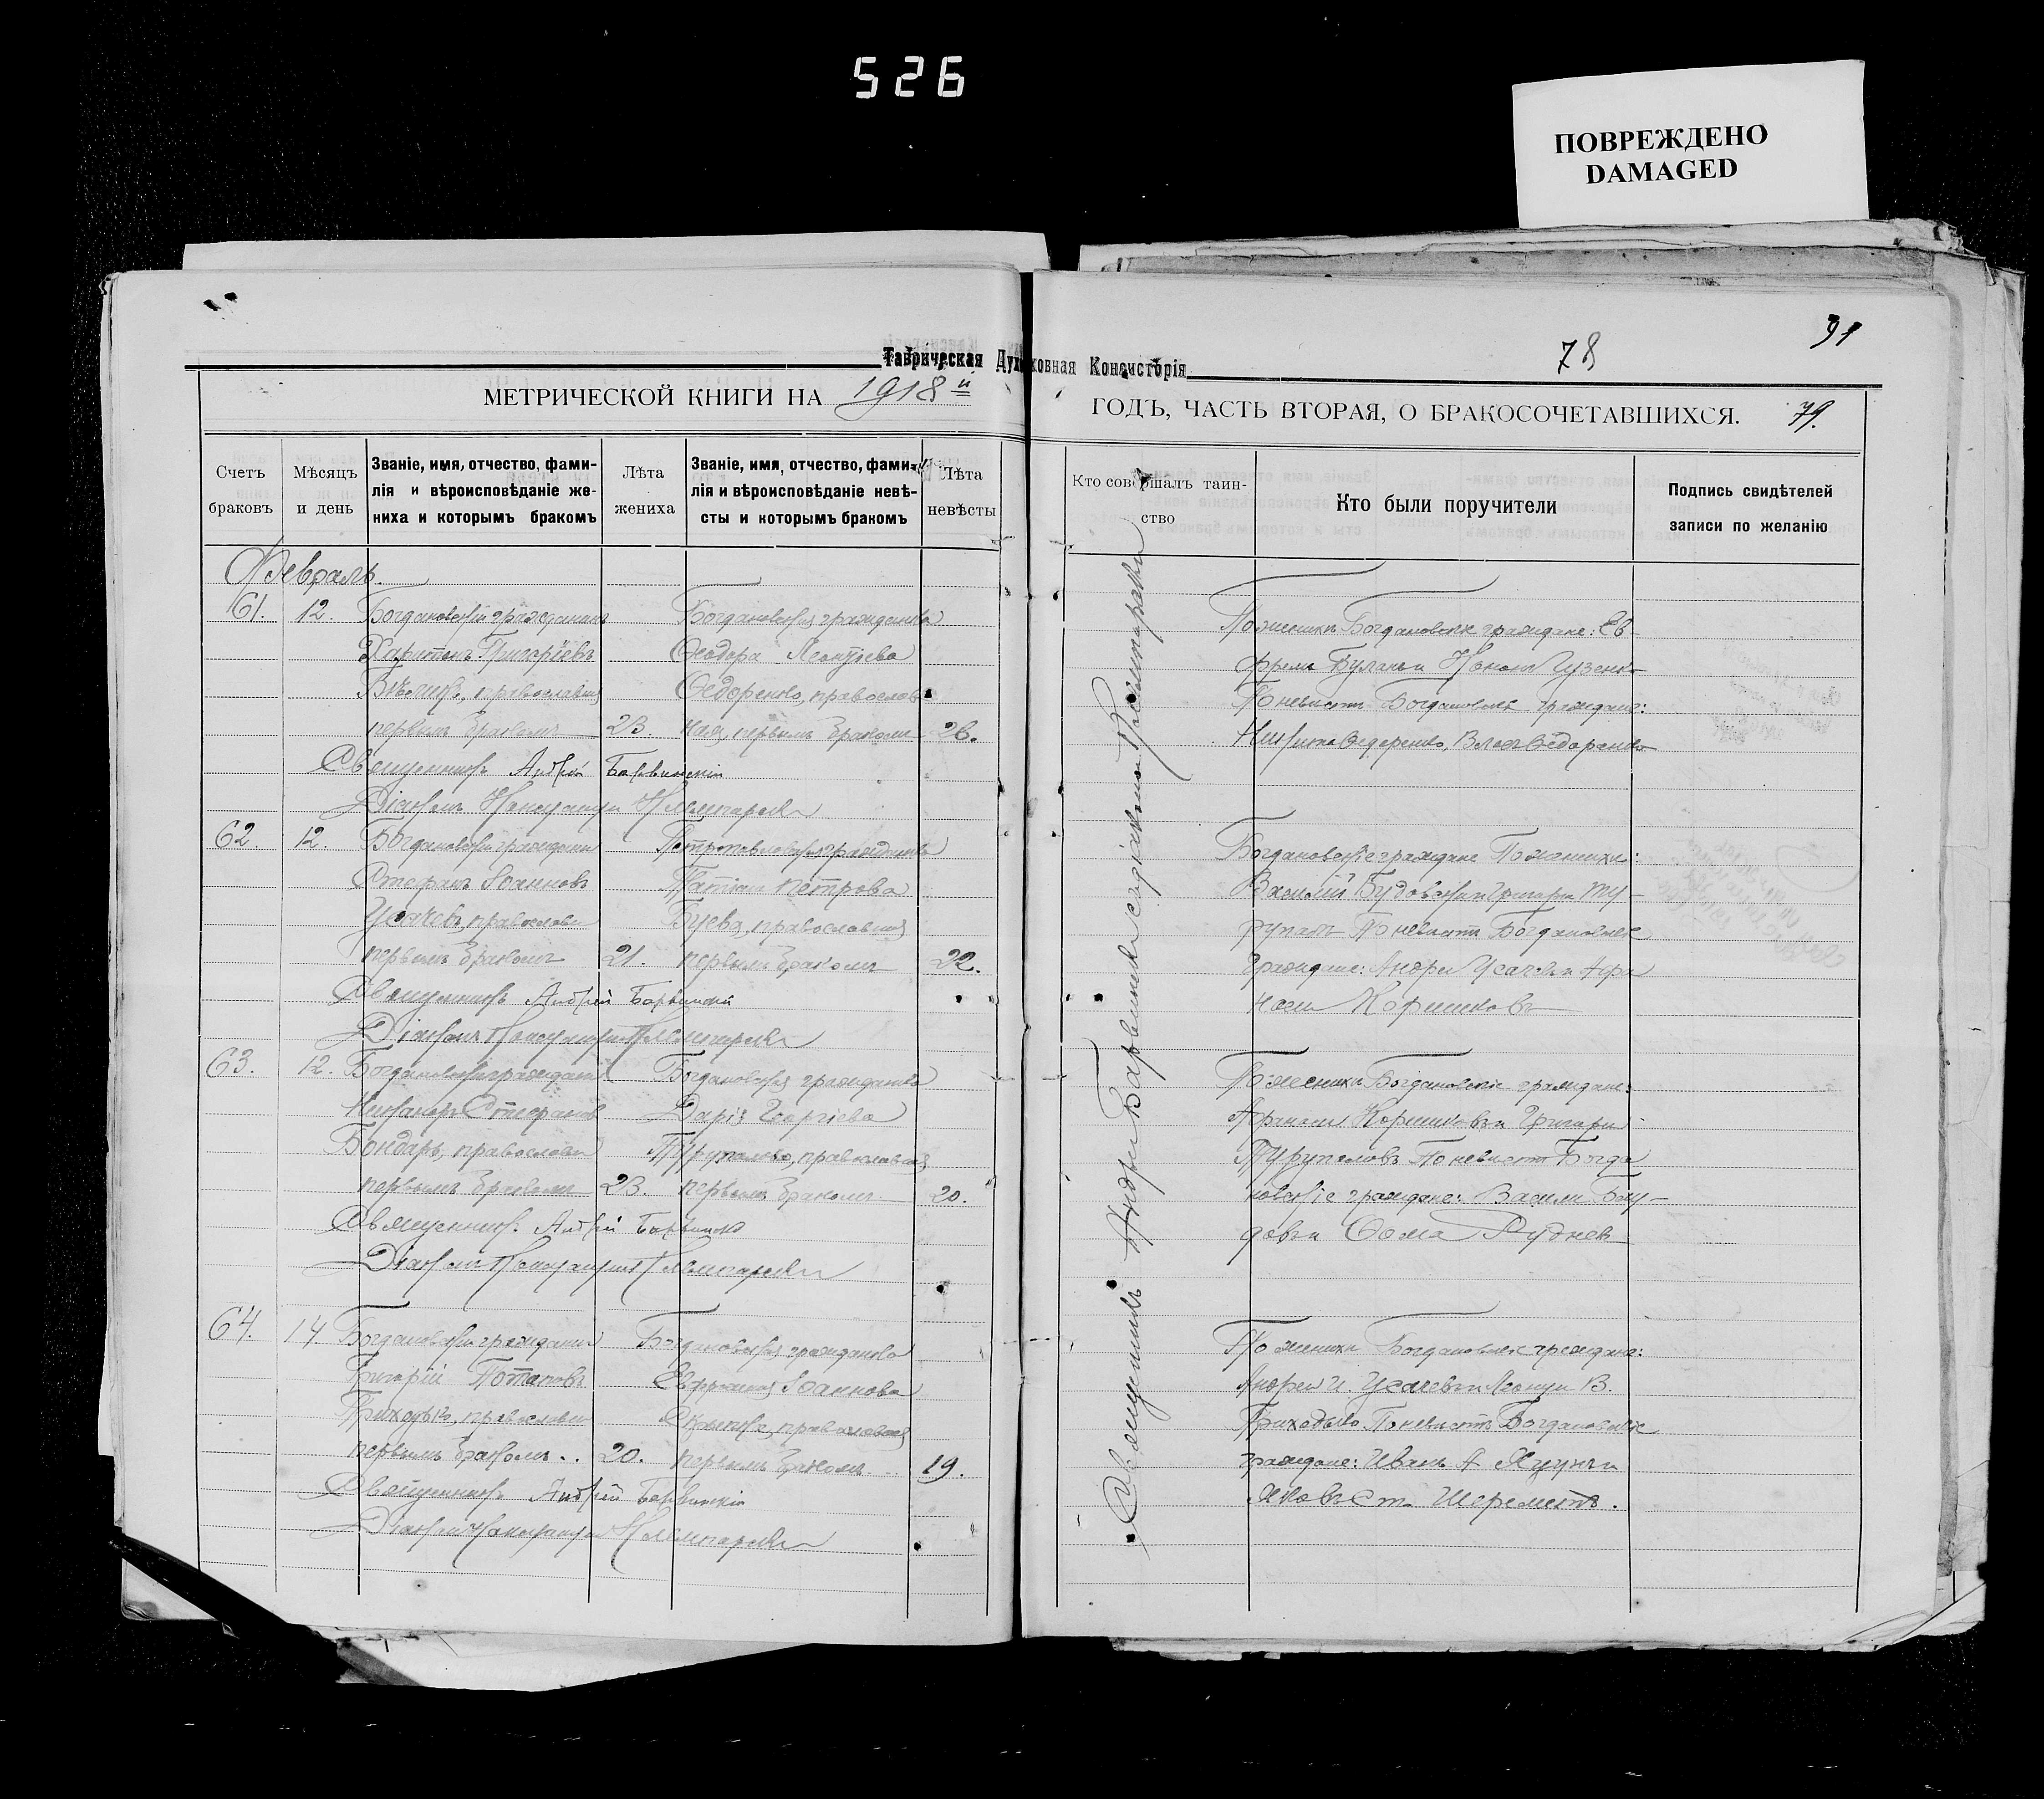 526
ПОВРЕЖДЕНО
DAMAGED
91
78
Таврическая Духовная Консисторія
МЕТРИЧЕСКОЙ КНИГИ НА 1918й
ГОДЪ, ЧАСТЬ ВТОРАЯ, О БРАКОСОЧЕТАВШИХСЯ. 79.
Счетъ браковъ
Мѣсяцъ и день
Званіе, имя, отчество, фами-
лія и вѣроисповѣданіе же-
ниха и которымъ бракомъ
Лѣта жениха
Званіе, имя, отчество, фами-
лія и вѣроисповѣданіе невѣ-
сты и которымъ бракомъ
Лѣта невѣсты
Кто совершалъ таин-
ство
Кто были поручители
Подпись свидѣтелей
записи по желанію
Февраль.
61. 12. Богдановскій гражданинъ
Харитонъ Григоріевъ
православный
первымъ бракомъ 23.
Богдановская гражданка
Ѳеодора Леонтіева
Ѳедоренко, православ
ная, первымъ бракомъ 26.
Священникъ Андрей Барвинскій
Діаконъ
По женихѣ Богдановскіе граждане: Ев
По невѣстѣ Богдановскіе граждане:
Никита Ѳедоренко, Ѳедоренко
62. 12. Богдановскій гражданинъ
Стефанъ Іоанновъ
Усачевъ, православный
первымъ бракомъ 21.
Петропавловская гражданка
Петрова
Буева, православная
первымъ бракомъ 22.
Священникъ Андрей Барвинскій
Діаконъ
Богдановскіе граждане По женихѣ:
Василій и Григорій Ту-
рупалъ По невѣстѣ Богдановскіе
граждане: Андрей Усачевъ и Афа
насій Коршиковъ
63. 12. Богдановскій гражданинъ
Никаноръ Стефановъ
Бондарь, православный
первымъ бракомъ 23.
Богдановская гражданка
Дарія Георгіева
Турупалова, православная
первымъ бракомъ 20.
Священникъ Андрей Барвинскій
Діаконъ
По женихѣ Богдановскіе граждане:
Афанасій Коршиковъ и Григорій
Турупаловъ По невѣстѣ Богда
новскіе граждане: Василій
Ѳома Рудневъ
64. 14. Богдановскій гражданинъ
Григорій Потаповъ
Приходько, православный
первымъ бракомъ.. 20.
Богдановская гражданка
Іоаннова
православная
первымъ бракомъ... 19.
Священникъ Андрей Барвинскій
Діаконъ
По женихѣ Богдановскіе граждане:
Андрей И. Усачевъ и Леонтій В.
Приходько По невѣстѣ Богдановскіе
граждане: Иванъ А
Яковъ Ст. Шереметъ.
Священникъ Андрей Барвинскій съ діакономъ